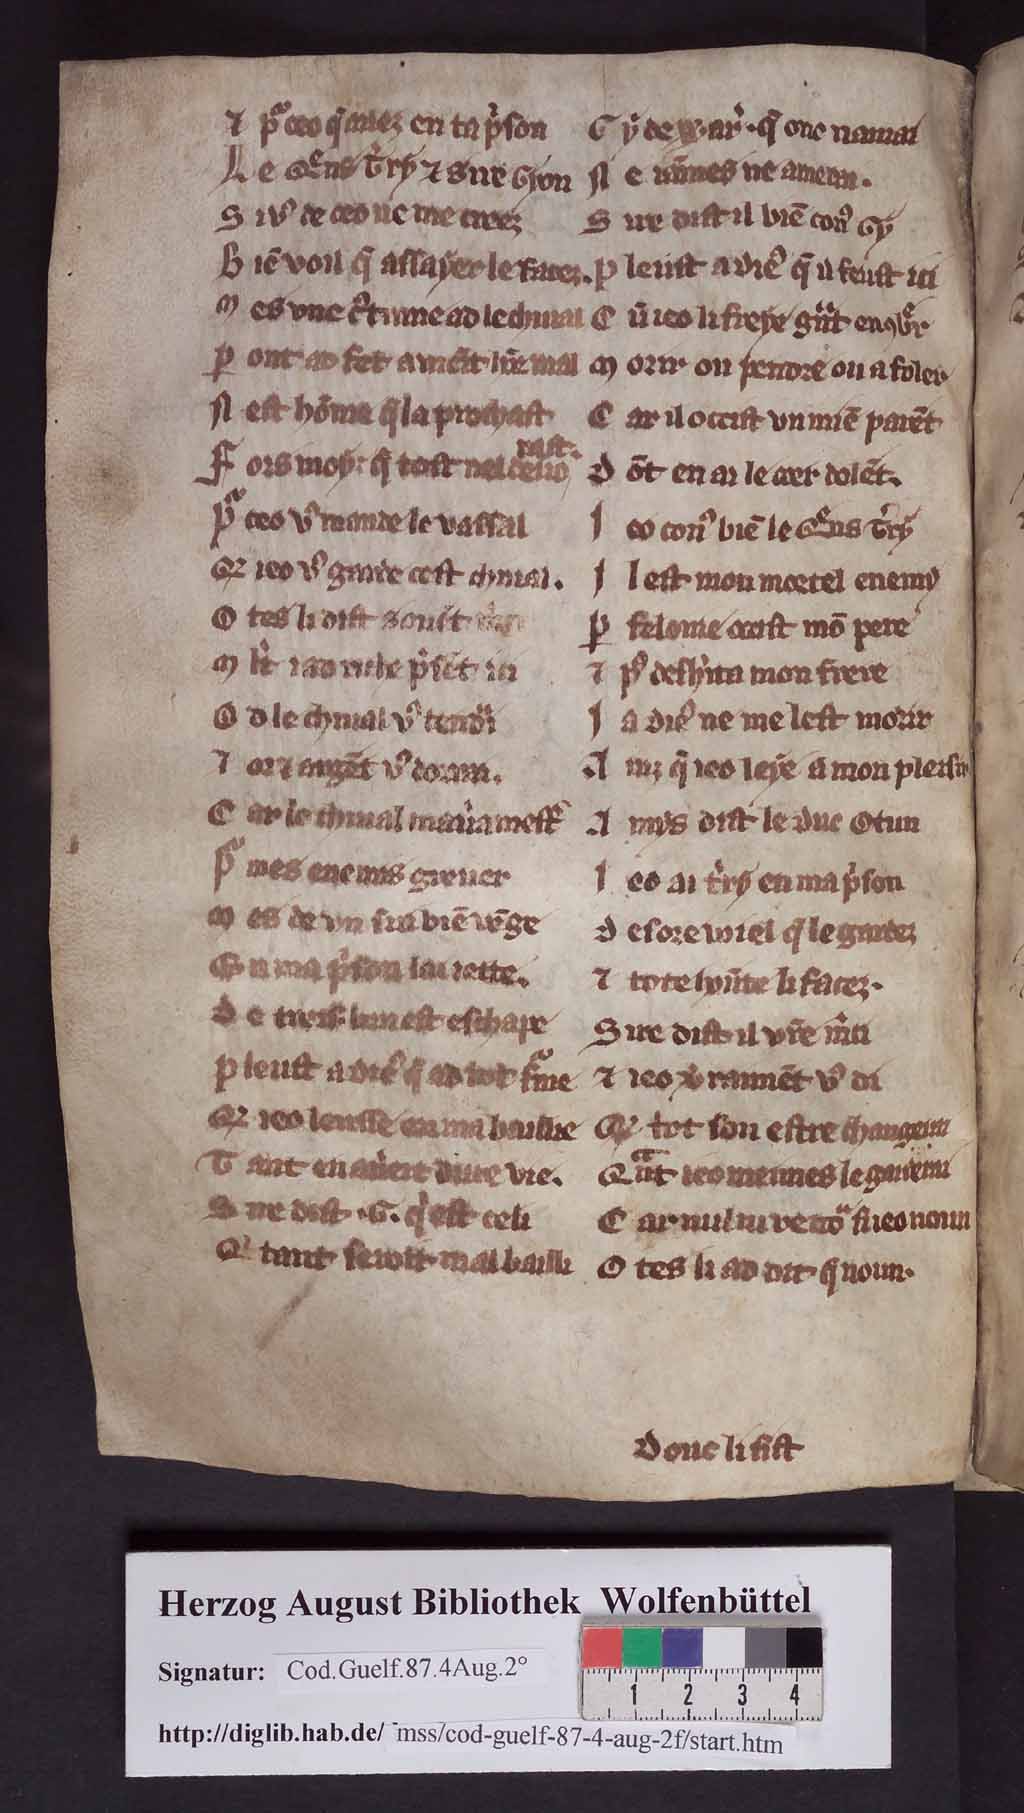 ⁊ pͣ ceo q̃ auez en ta pͥson
Le Quͤns tͥry ⁊ sire Gyon
Si vͦ de ceo ne me creez
Biē voil q̃ assayer le facez.
Mes vne ctume ad le chiual
Pont ad fet a meīt hōe mal
Nest hōme q̃ la prochast
rast.
Fors moy: q̃ tost nel deuo
Pͣ ceo vͦ mande le vassal
Q̄ ieo vͦ garde cest chiual.
Otes li dist
Mlt̄ ici
Od le chiual vͦ
⁊ or ⁊ argēt vͦ dorai.
Car le chiual mauͣa mest
Pͣ mes enemis greuer
Mes de vn sui biē vēge
En ma pͥson lai iette.
De treis lun est eschape
Pleust a dieͧ q̃ ad tot fͣme
Q̄ ieo leusse en ma baillie
Tant en auͥeit dure vie.
Sire dist .G. qͥ est celi
Qͥ tant serroit mal bailli
Gy de War̄. q̃ onc namai
Ne iāmes ne amerai.
Sire dist il biē conͦ Gy
Pleust a dieͧ q̃ il feust ici
Cū ieo li freye gͣnt
Morir ou pendre ou afoler
Car il occist vn miē parēt
Dōt en ai le cer dolēt.
Ieo conͦ biē le Quͤns tͥry
Il est mon mortel enemy
P felonie occist mō pere
⁊ pͦ desh̄ita mon frere
Ia dieͧ ne me lest morir
Ainz q̃ ieo leye a mon pleisir
Amys dist le duc Otun
Ieo ai tͥry en ma pͥson
Desore wiel q̃ le gardez
⁊ tote hōnte li facez.
Sire dist il vr̄e m̄ci
⁊ ieo vͦraimēt vͦ di
Q̄ tot son estre changerai
Qͣnt ieo meimes le garderai
Car nul iu ieo noun
Otes li ad dit q̃ noun.
Donc li fist
Herzog August Bibliothek Wolfenbüttel
Signatur: Cod.Guelf.87.4Aug.2°
1 2 3 4
http://diglib.hab.de/ mss/cod-guelf-87-4-aug-2f/start.htm